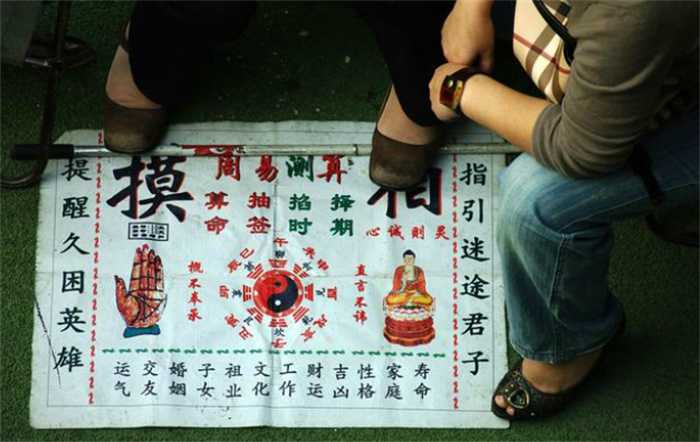 周易测算
提醒久困英雄
摸
相
算命 抽签 掐时 择期
心诚则灵
指引迷途君子
概不奉承
午
巳
辰
直言不讳
运气 交友 婚姻 子女 祖业 文化 工作 财运 吉凶 性格 家庭 寿命